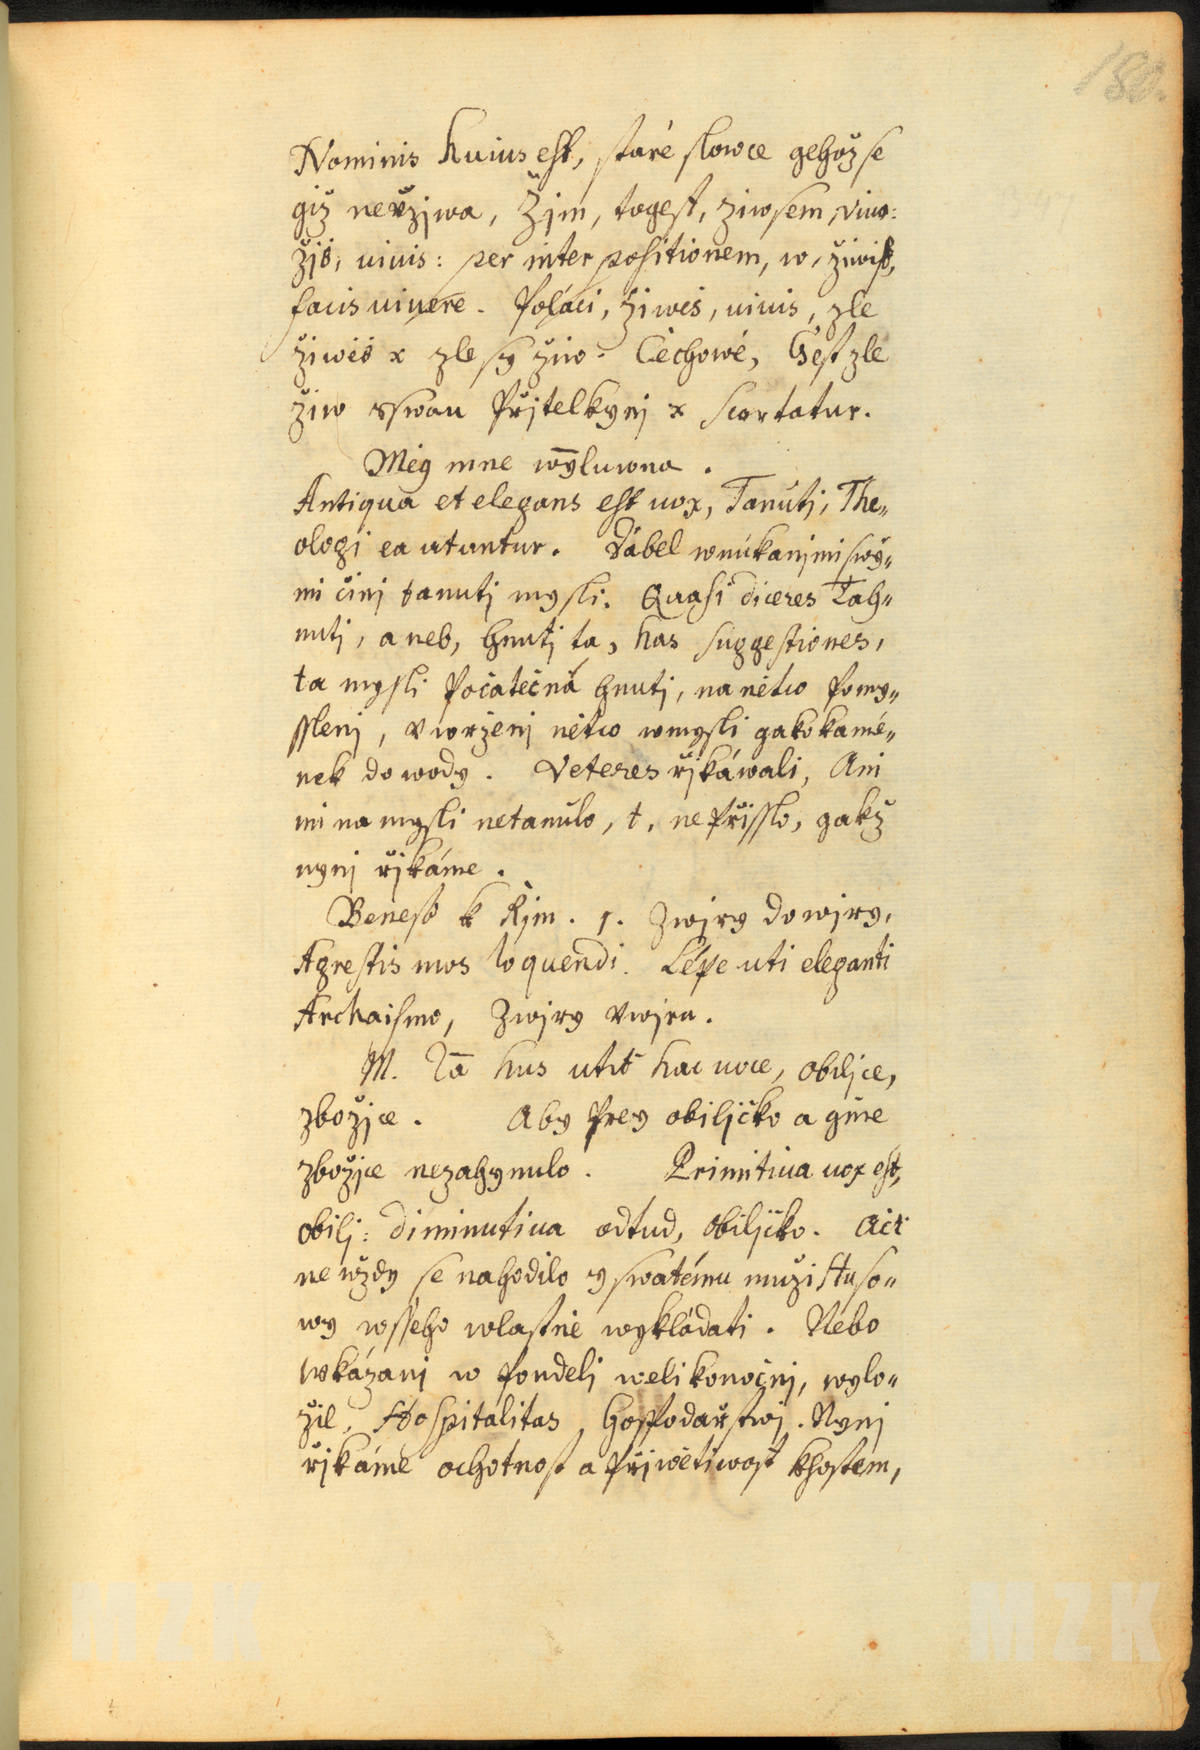 180.
Nominis huius est, staré slowce gehož se
giž neužjwa, Žjm, togest, žiwsem, viuo:
žjš, uiuis: per inter positionem, w, žiwiss,
facis uiuere. Poláci, žiweš, uiuis, zle
žiweš x zle sy žiw. Čechowé, Gest zle
žiw sswau Přjtelkynj x scortatur.
Měg mne wyluwna.
Antiqua et elegans est uox, Tanúti, The„
ologi ea utuntur. Ďábel wnúkanjmi swý„
mi činj tanutj mysli. Quasi diceres Tah„
nutj, aneb, hnutj ta, has suggestiones,
ta mysli Počátečná hnutj, na něco Pomy„
sslenj, vwrženj něco wmysli gako kamé„
nek do wody. Veteres řjkáwali, Ani
mi na mysli netanúlo, t. nepřisslo, gakž
nynj řjkáme.
Beness k Řjm. 1. Zwjry dowjry,
Agrestis mos loquendi. Lépe uti eleganti
Archaismo, Zwjry vwjru.
M. Ja hus utit hac uoce, obiljce,
zbožjce. Aby Prey obiljčko a giné
zbožjce nezahynulo. Primitiua uox est,
obilj: diminutiua odtud, obiljčko. Ač
ne wždy se nahodilo y swatému muži Huso„
wy wsseho wlastně wykládati. Nebo
Wkázanj w Pondělj welikonočnj, wylo„
žil, Hospitalitas, hospodářstwj. Nynj
řjkáme ochotnost a Přjwětiwost khostem,
MZK
MZK